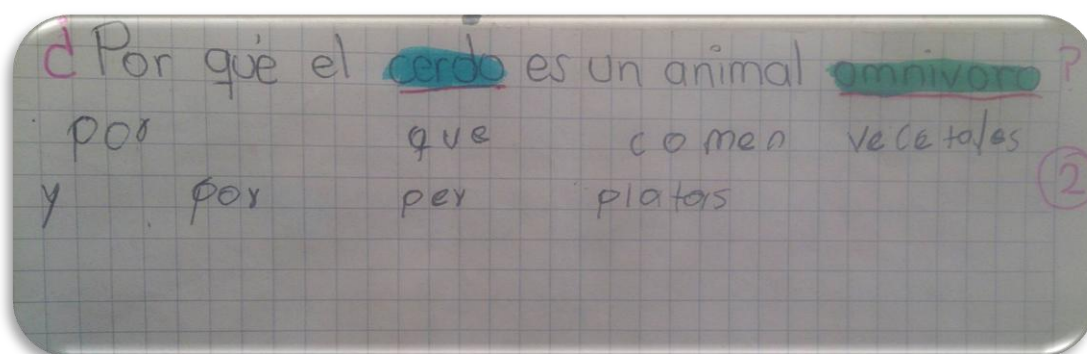 ¿Por qué el cerdo es un animal omnivoro?
por que comen vecetales
y por per platas
②